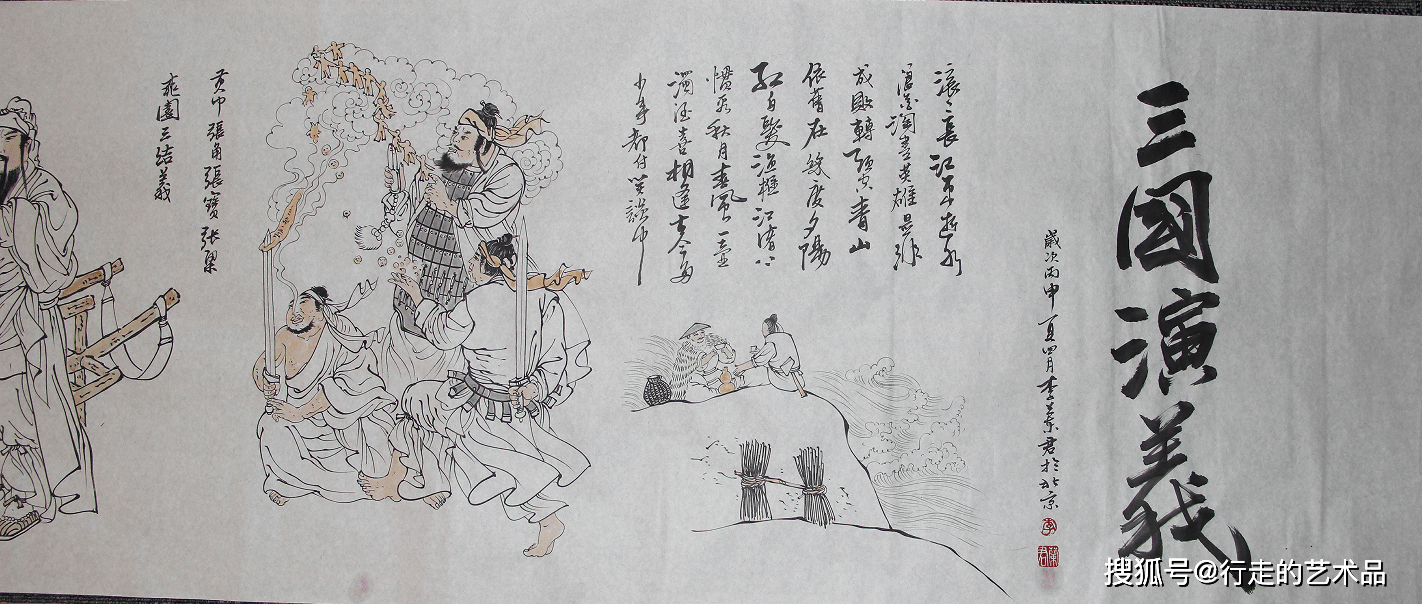 三國演義
歲次丙申夏四月李君於北京
李
君
滾〻長江東逝水
浪花淘盡英雄是非
成敗轉頭空青山
依舊在幾度夕陽
紅白髮漁樵江渚上
慣看秋月春風一壺
濁酒喜相逢古今多
少事都付笑談中
黄巾張角張寶張梁
桃園三結義
搜狐号@行走的艺术品